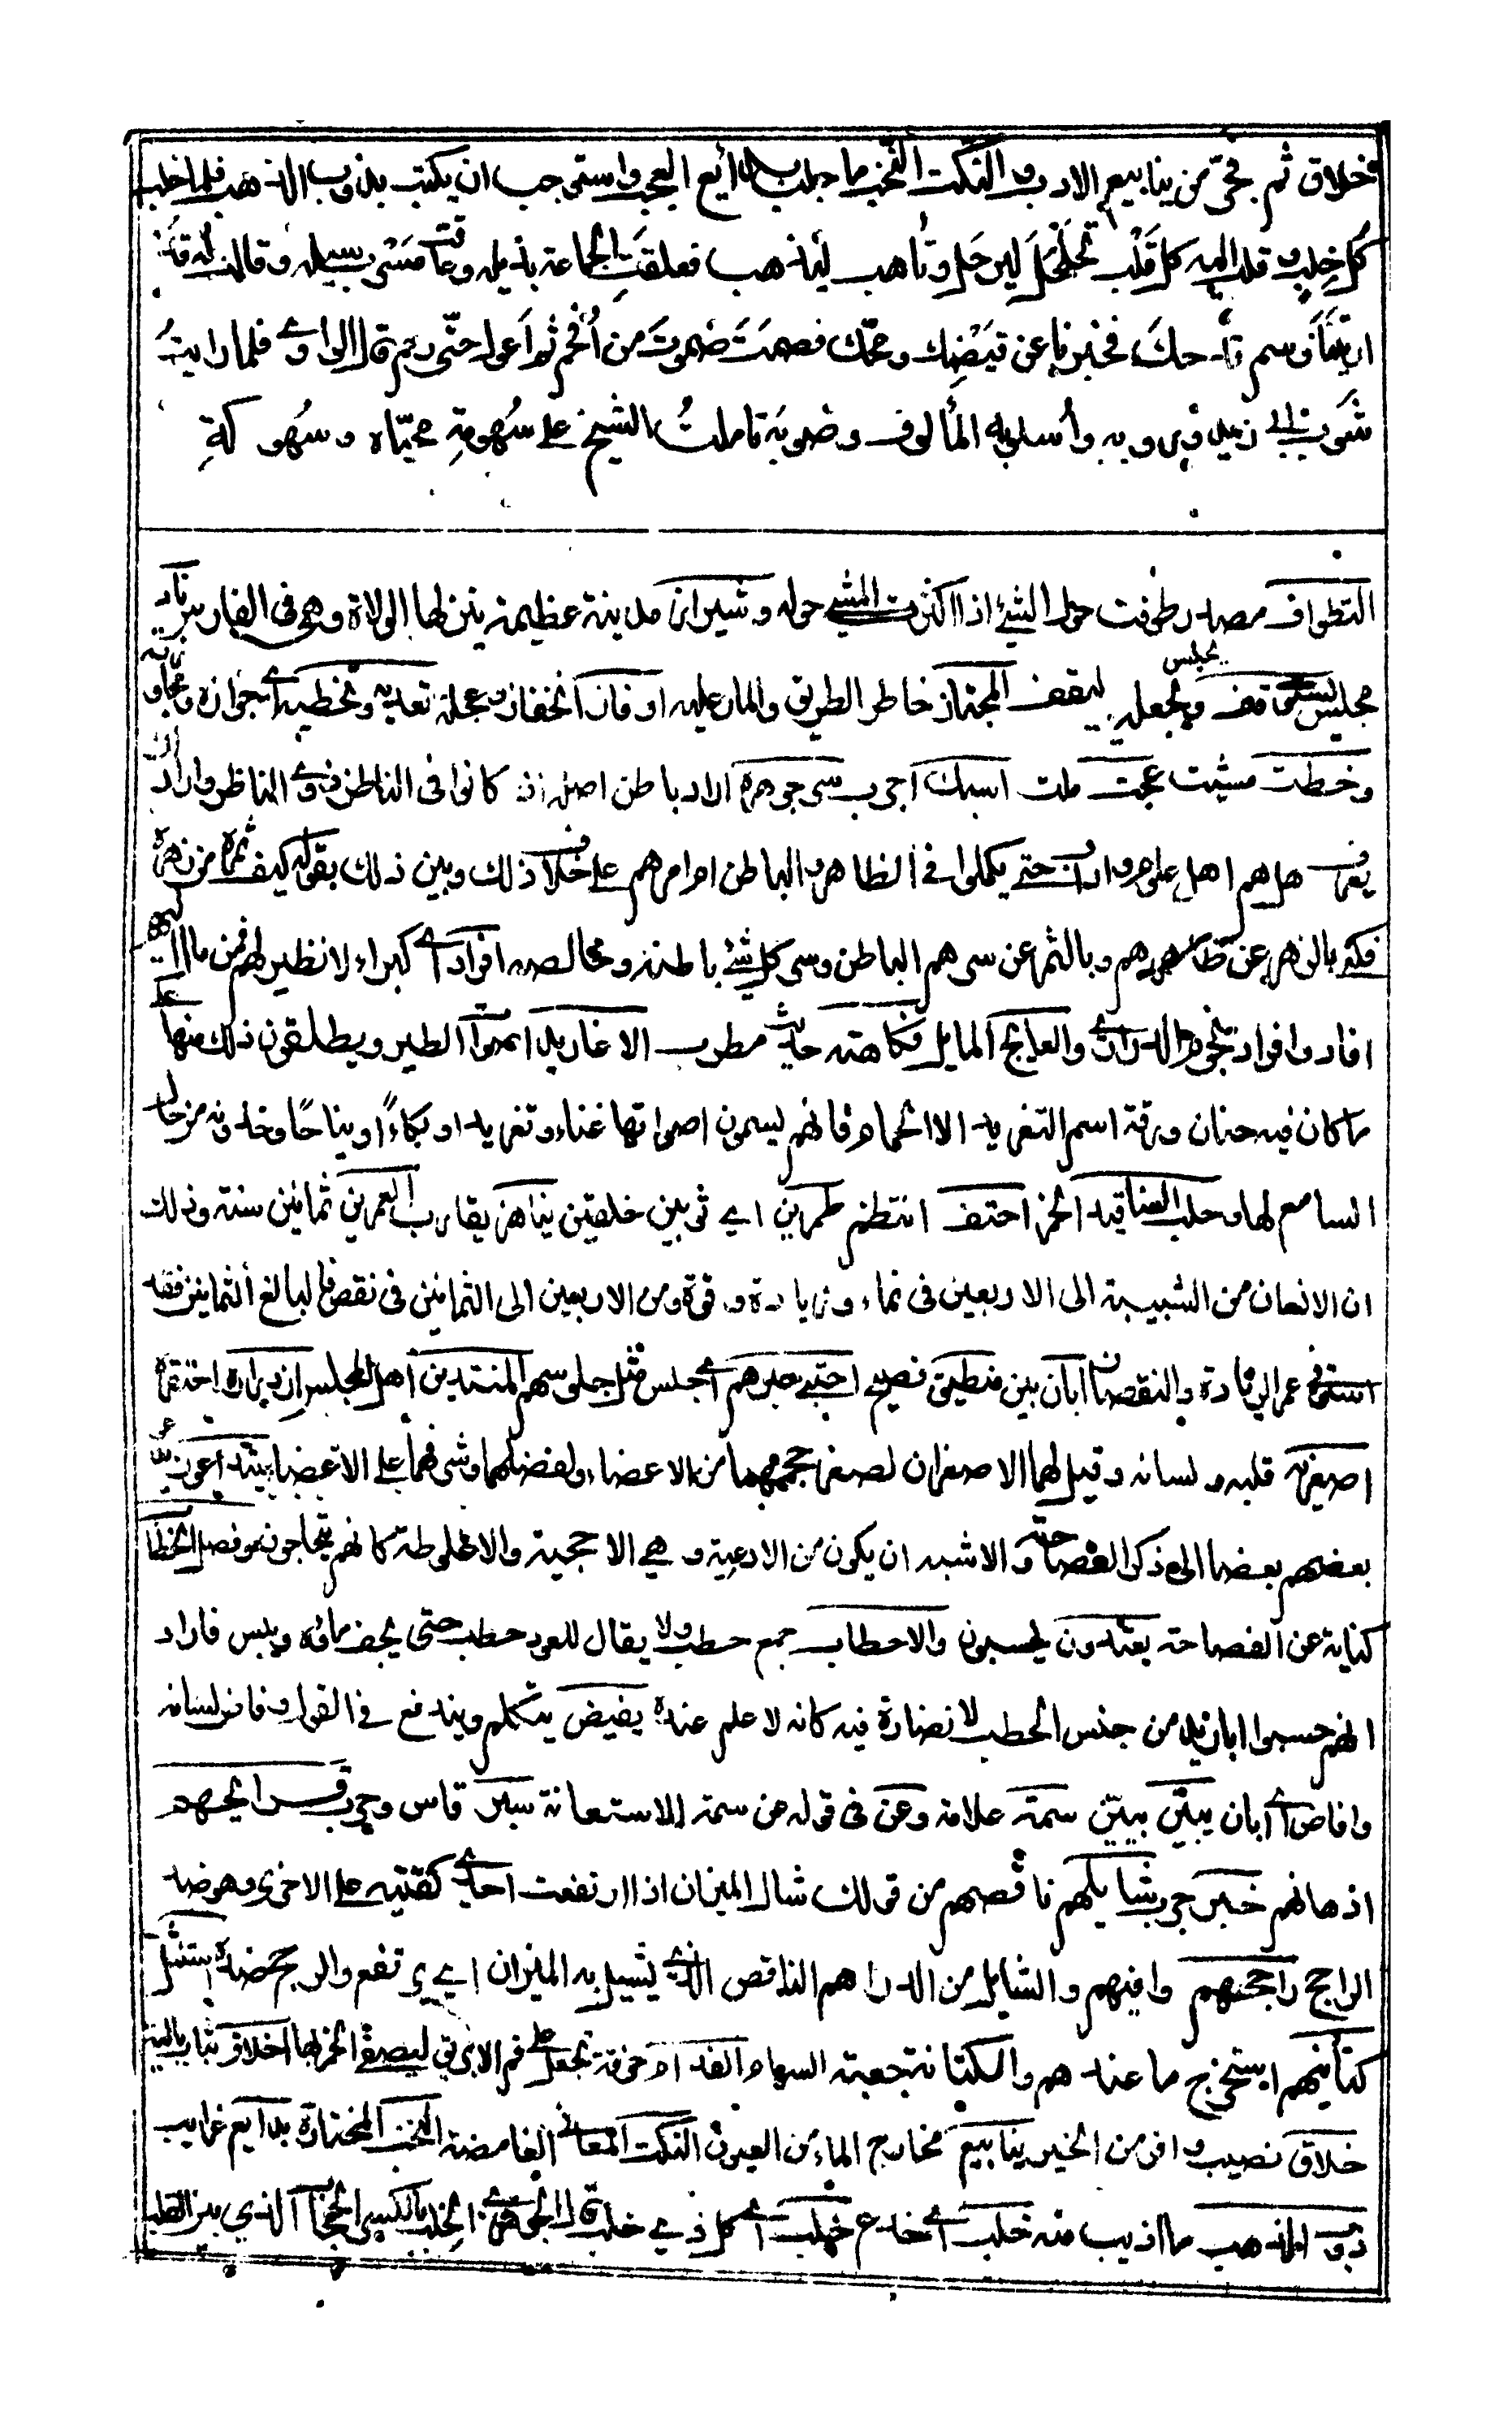 خلاق ثم فجر من ينابيع الادب والنكت النخب ما جلب به بدايع العجب واستوجب ان يكتب بذوب الذهب فلما خلب
كل خلب وقلب اليه كل قلب تحلحل ليرحل وتأهب ليذهب فعلقت الجماعة بذيله وعاقت مسرب سيله وقالت له قد
اريتنا وسم قدحك فخبرنا عن قيضك ومحك فصمت صموت من افحم ثم اعول حتى رحم قال الراوي فلما رايت
شوب ابي زيد وروبه وأسلوبه المألوف وصوبه تاملت الشيخ على سهومة محياه وسهوكة

التطواف مصدر طوفت حول الشئ اذا اكثرت المشي حوله وشيراز مدينة عظيمة ينزلها الولاة وهي في الفارس ناد
مجلس يستوقف ويجعله يجلس ليقف المجتاز خاطر الطريق والمار عليه اوفاز انحفاز وعجلة تعديه وتخطيه اي جوازه
وخطت مشيت عجت ملت اسبك اجرب سر جوهره الاد باطن اصله اذ كانوا في الناظر ذوي المناظر واراد
يعرف هل هم اهل علم وادب حتى يكملوا في الظاهر والباطن ام امرهم على خلاف ذلك وبين ذلك بقوله كيف ثمره من زهره
فكنى بالزهر عن ظاهرهم وبالثمر عن سرهم الباطن وسر كل شئ باطنه وخالصه افراد اي كبراء لا نظير لهم
افاد وافراد نجوم الدراري والعايج المايل فكاهة حديث مطرب الاغاريد اصوات الطير ويطلقون ذلك منها على
ما كان فيه حنان ورقة اسم التغريد الا الحمام فانهم يسمون اصواتها غناء وتغريد او بكاء او نياحا وخذونه من حال
السامع لها وحلب العناقيد الخمر احتف انتظم طمرين اي ثوبين خلقين يناهز يقارب العمرين ثمانين سنة وذلك
ان الانسان من الشبيبة الى الاربعين في نماء وزيادة وقوة ومن الاربعين الى الثمانين في نقص فالبالغ الثمانين فقد
استوفى عمر الزيادة والنقصان ابان بين منطيق فصيح احتبى حبوهم اي جلس مثل جلوسهم المنتدين اهل المجلس ازدراه احتقره
اصغريه قلبه ولسانه وقيل لهما الاصغران لصغر حجمهما من الاعضاء ولفضلهما وشرفهما على الاعضا يتداعون
بعضهم بعضا الى ذكر الفصاحة والاشبه ان يكون من الادعية وهي الاحجية والاغلوطة كانهم يتحاجون وفصل الخطاب
كناية عن الفصاحة يعتدون يحسبون والاحطاب جمع حطب ولا يقال للعود حطب حتى يجف ماؤه ويبس فاراد
انهم حسبوا ابا زيد من جنس الحطب لا نضارة فيه كانه لا علم عنده يفيض يتكلم ويندفع في القول وفاض لسانه
وافاض اي ابان يبين يبيّن سمة علامة وعن في قوله عن سمة للاستعانة سبر قاس وجرب قرايحهم
اذهانهم خبر جرب شايلهم ناقصهم من قولك شال الميزان اذا ارتفعت احدي كفتيه على الاخرى وهو ضد
الراجح راجحهم وافيهم والشايل من الدراهم الناقص الذي يشيل به الميزان اي يرتفع والرجح ضده استنثل
كنايتهم استخرج ما عندهم والكنانة جعبة السهام الفدام خرقة تجعل على فم الابريق ليصفى الخمر بها اخلاق ثياب بالية
خلاق نصيب وافر من الخير ينابيع مخارج الماء من العيون النكت المعاني الغامضة النخب المختارة بدايع غرايب
ذوب الذهب ما اذيب منه خلب اي خدع خلب اي كل ذي خلب قال الجوهري الخلب بالكسر الحجاب الذي بين القلب